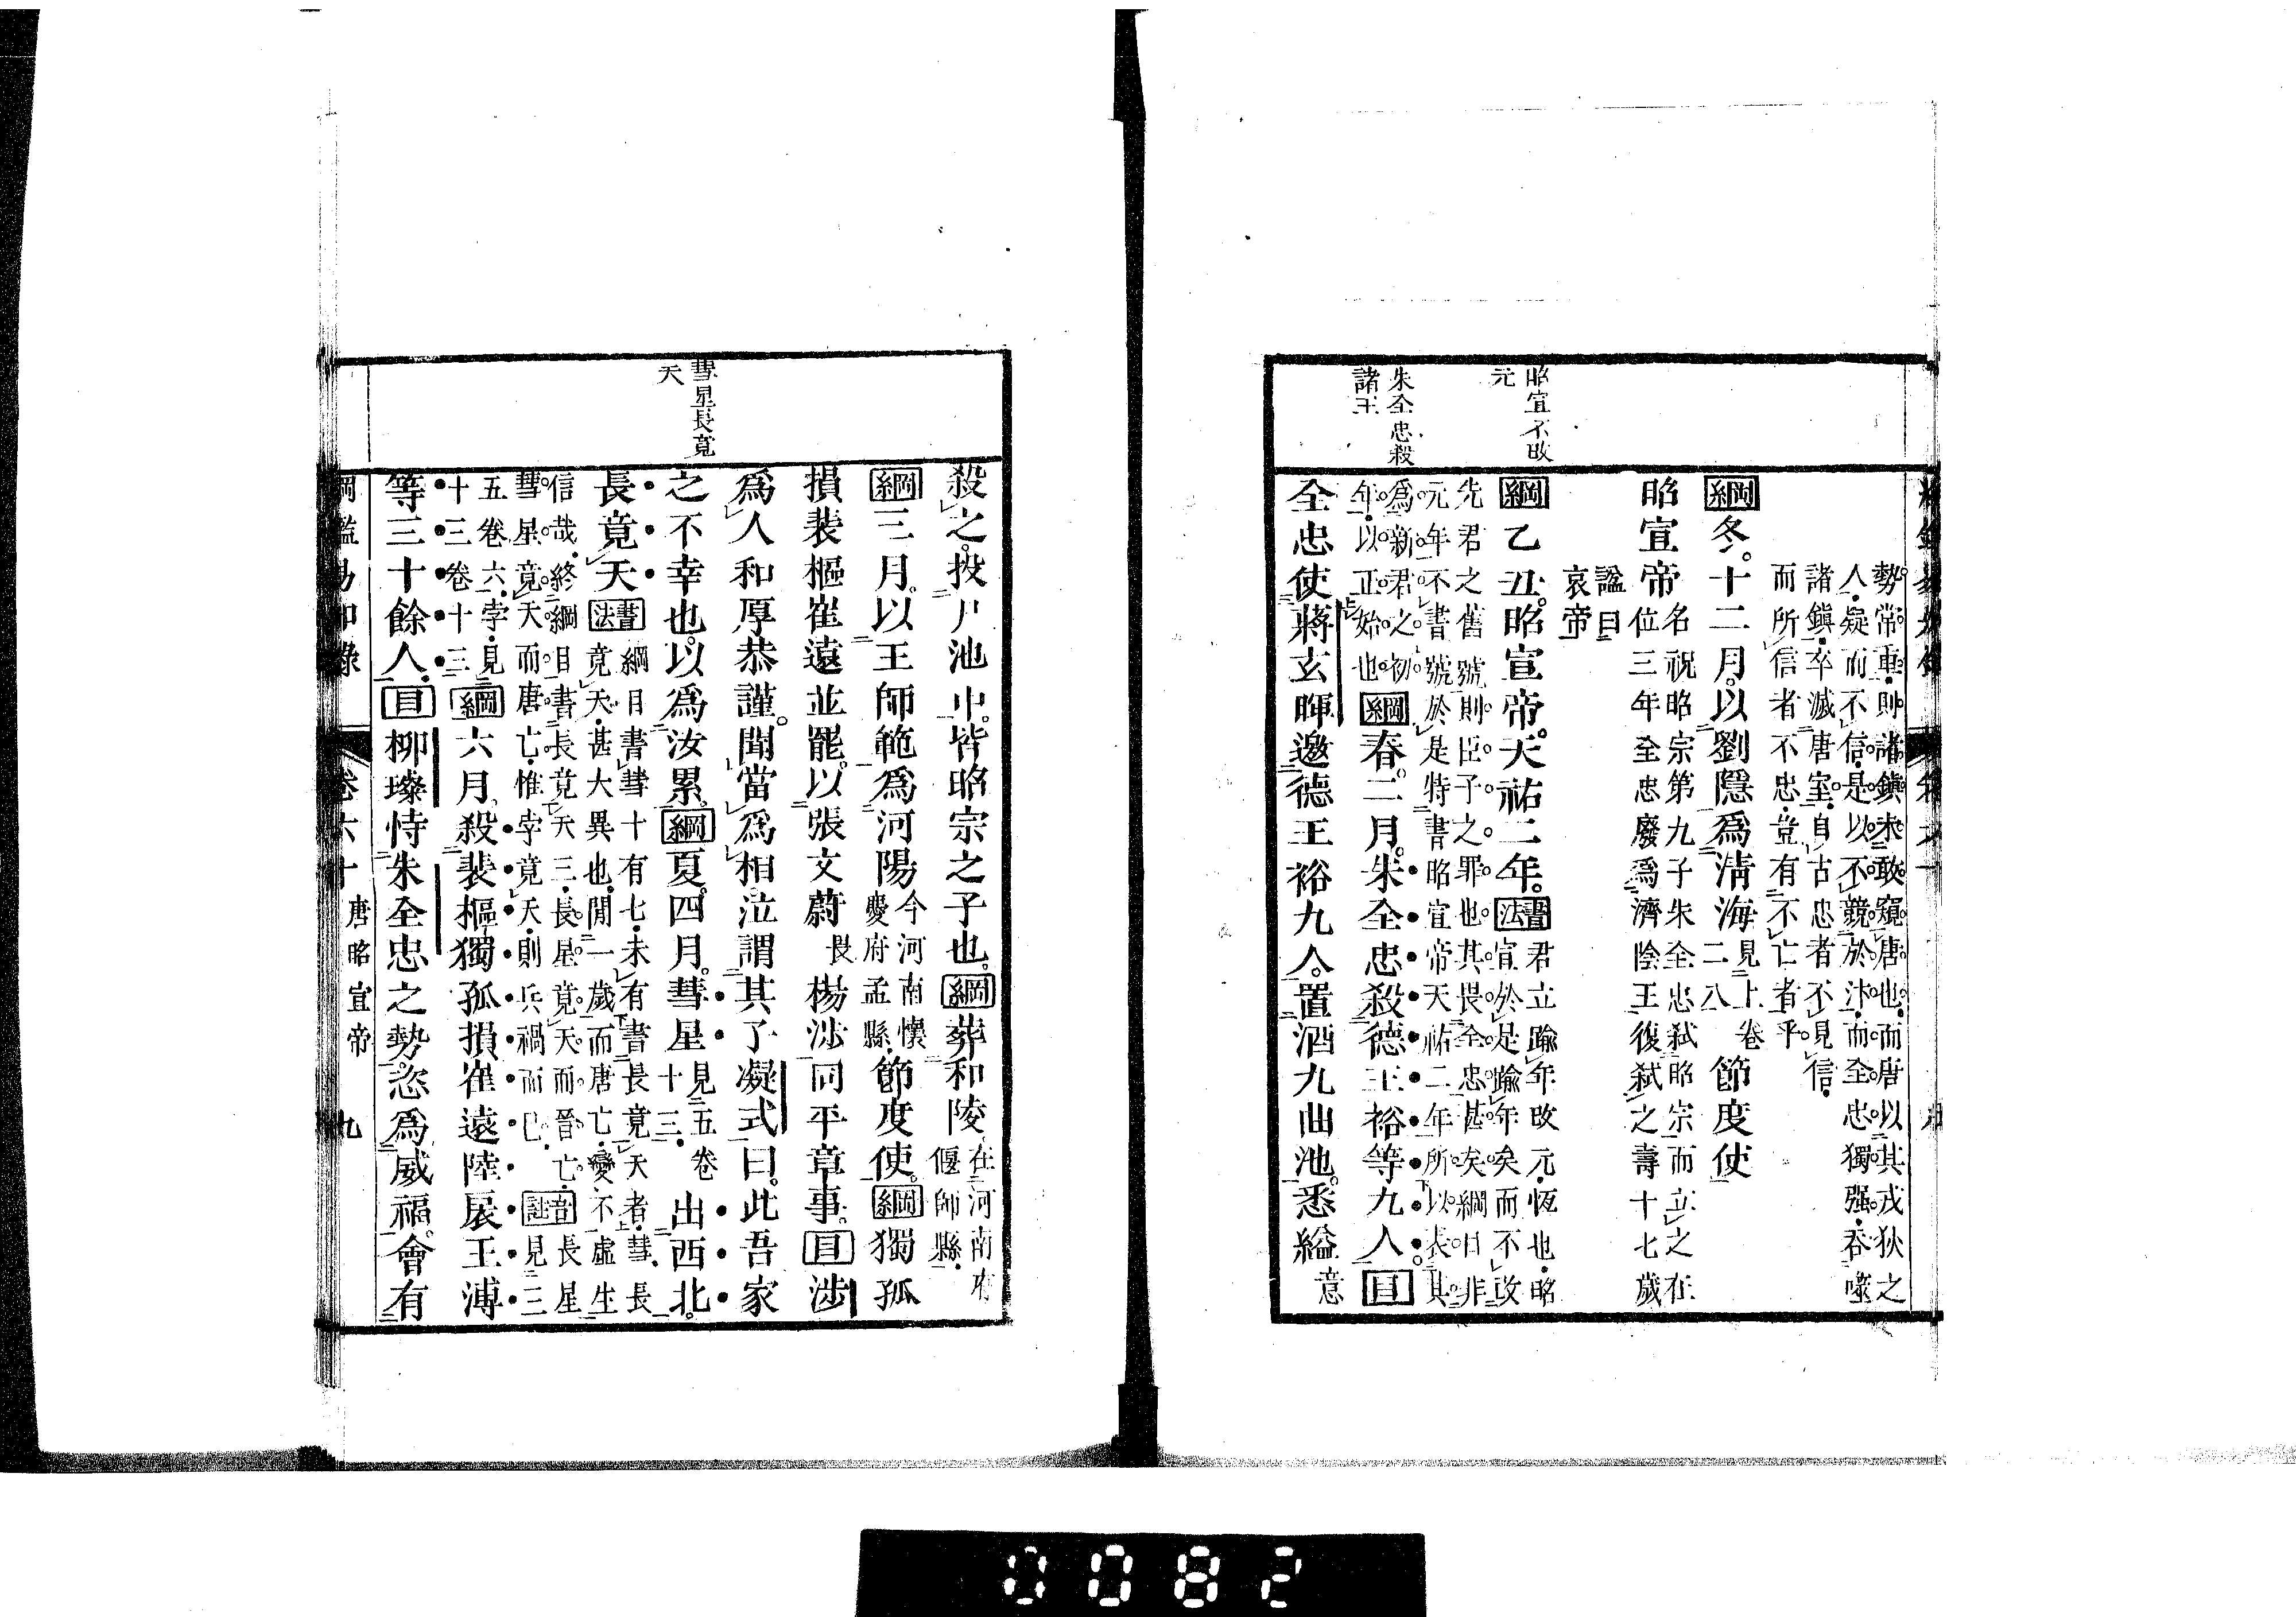 昭宣不改
元
朱全忠殺
諸王
勢常重則諸鎮未敢窺唐也而唐以其戎狄之
人疑而不信是以不競於汴而全忠獨强吞噬
諸鎮卒滅唐室自古忠者不見信
而所信者不忠豈有不亡者乎
綱冬十二月以劉隱爲清海見上卷二八節度使
昭宣帝名祝昭宗第九子朱全忠弑昭宗而立之在
位三年全忠廢爲濟陰王復弑之壽十七歲
諡曰
哀帝
綱乙丑昭宣帝天祐二年書法君立踰年改元恆也昭
宣於是踰年矣而不改
先君之舊號則臣子之罪也其畏全忠甚矣綱目非
元年不書號於是特書昭宣帝天祐二年年所以表其
爲新君之初
年以正始也綱春二月朱全忠殺德王裕等九人目
全忠使蔣玄暉邀德王裕九人置酒九曲池悉縊意
彗星長竟
天
殺之投尸池中皆昭宗之子也綱葬和陵在河南府
偃師縣
綱三月以王師範爲河陽今河南懷
慶府孟縣節度使綱獨孤
損裴樞崔遠並罷以張文蔚畏楊涉同平章事目涉
爲人和厚恭謹聞當爲相泣謂其子凝式曰此吾家
之不幸也以爲汝累綱夏四月彗星見五卷
十三出西北
長竟天書法綱目書彗十有七未有書長竟天者彗長
竟天甚大異也閒一歲而唐亡變不虛生
信哉終綱目書長竟天三長星竟天而晉亡
彗星竟天而唐亡惟孛竟天則兵禍而已音註長星見三
五卷六孛見
十三卷十三綱六月殺裴樞獨孤損崔遠陸扆王溥
等三十餘人目柳璨恃朱全忠之勢恣爲威福會有
卷六十 唐昭宣帝 九
0082